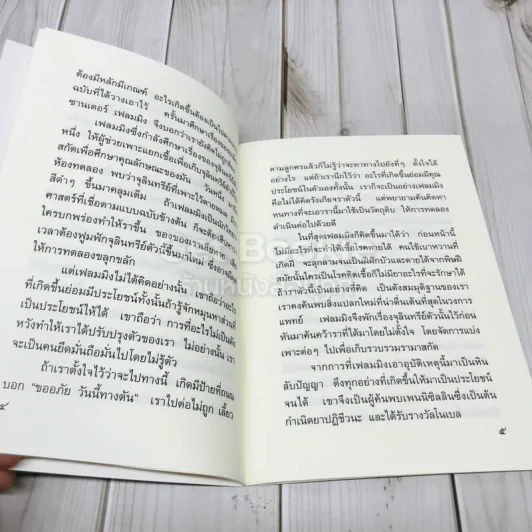 ต้องมีหลักมีเกณฑ์ อะไรเกิดขึ้นต้องเป็นไปตาม
ฉบับที่ได้วางเอาไว้ ครั้นมาศึกษาเรื่องของ
ซานเดอร์ เฟลมมิง จึงบอกว่าเรายังคิดไม่ถูก
เฟลมมิงซึ่งกำลังศึกษาเรื่องของจุลินทรีย์
หนึ่ง ให้ผู้ช่วยเพาะแยกเชื้อเพื่อเก็บจุลินทรีย์
สกัดเพื่อศึกษาคุณลักษณะของมัน วันหนึ่ง
ห้องทดลอง พบว่าจุลินทรีย์ที่เพาะไว้ตายหมด
สีดำๆ ขึ้นมาคลุมเต็ม ถ้าเฟลมมิงเป็นนักวิทยา
ศาสตร์ที่เชื่อตามแบบฉบับข้างต้น ก็จะต้อง
ใครบกพร่องทำให้ราขึ้น ของของเราเสียหาย
เวลาต้องฟูมฟักจุลินทรีย์ตัวนี้ขึ้นมาใหม่
ให้การทดลองขลุกขลัก
แต่เฟลมมิงไม่ได้คิดอย่างนั้น เขาถือว่าอะไร
ที่เกิดขึ้นย่อมมีประโยชน์ทั้งนั้นถ้ารู้จักหมุนหาส่วนที่
เป็นประโยชน์ให้ได้ เขาถือว่า การที่อะไรไม่เป็นดัง
หวังทำให้เราได้ปรับปรุงตัวของเรา ไม่อย่างนั้นเรา
จะเป็นคนยึดมั่นถือมั่นไปโดยไม่รู้ตัว
ถ้าเราตั้งใจไว้ว่าจะไปทางนี้ เกิดมีป้ายที่ถนน
บอก "ขออภัย วันนี้ทางตัน" เราไปต่อไม่ถูก เลี้ยว
๔
ตามลูกศรแล้วก็ไม่รู้ว่าจะหาทางไปยังที่ๆ ตั้งใจได้
อย่างไร แต่ถ้าเรานึกไว้ว่า อะไรที่เกิดขึ้นย่อมมีคุณ
ประโยชน์ในตัวเองทั้งนั้น เราก็จะเป็นอย่างเฟลมมิง
คือไม่ได้คิดรังเกียจราตัวนี้ แต่พยายามค้นคิดหา
หนทางที่จะเอารานี้มาใช้เป็นวัตถุดิบ ให้การทดลอง
ดำเนินต่อไปด้วยดี
ในที่สุดเฟลมมิงก็คิดขึ้นมาได้ว่า ก่อนหน้านี้
ไม่มีอะไรที่จะทำให้เชื้อโรคตายได้ คนไข้เบาหวานที่
เกิดฝี จะลุกลามจนเป็นฝีฝักบัวและตายได้จากพิษฝี
สมัยนั้นใครเป็นโรคติดเชื้อก็ไม่มียาอะไรที่จะรักษาได้
ถ้าราตัวนี้เป็นอย่างที่คิด เป็นดังสมมุติฐานของเรา
เราคงค้นพบสิ่งแปลกใหม่ที่น่าตื่นเต้นที่สุดในวงการ
แพทย์ เฟลมมิงจึงพักเรื่องจุลินทรีย์ตัวนั้นไว้ก่อน
หันมาค้นคว้าราที่ได้มาโดยไม่ตั้งใจ โดยจัดการแบ่ง
เพาะต่อๆ ไปเพื่อเก็บรวบรวมรามาสกัด
จากการที่เฟลมมิงเอาอุบัติเหตุนี้มาเป็นหิน
ลับปัญญา ดึงทุกอย่างที่เกิดขึ้นให้มาเป็นประโยชน์
จนได้ เขาจึงเป็นผู้ค้นพบเพนนิซิลลินซึ่งเป็นต้น
กำเนิดยาปฏิชีวนะ และได้รับรางวัลโนเบล
๕